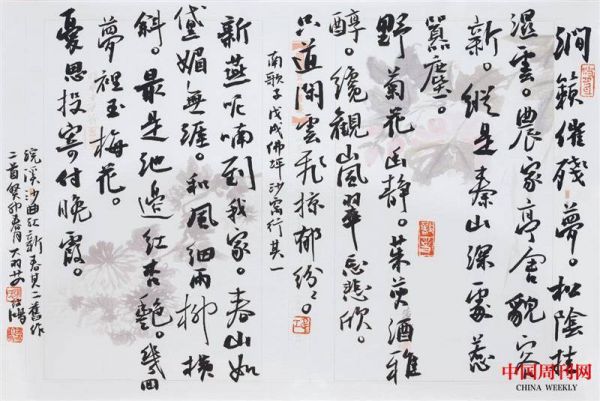 澗籟催殘夢。松陰挂
濕雲。農家亭舍貌容
新。縱是秦山深處惹
囂塵。
野菊花幽靜。茱萸酒雅
醇。觀山嵐翠忘悲欣。
只道閑雲飛掠郁紛紛。
南歌子戊戌佛坪沙窩行其一
新燕呢喃到我家。春山如
黛媚無涯。和風細雨柳橫
斜。最是池邊紅杏艷。幾回
夢裡玉梅花。
憂思投寄付晚霞。
浣溪沙曲江新春其二舊作
二首癸卯春月大羽
中国周刊网
CHINA WEEKLY